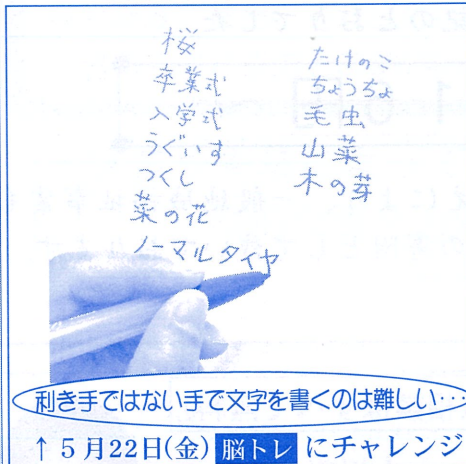 桜
卒業式
入学式
うぐいす
つくし
菜の花
ノーマルタイヤ
たけのこ
ちょうちょ
毛虫
山菜
木の芽
利き手ではない手で文字を書くのは難しい…
↑5月22日(金) 脳トレ にチャレンジ